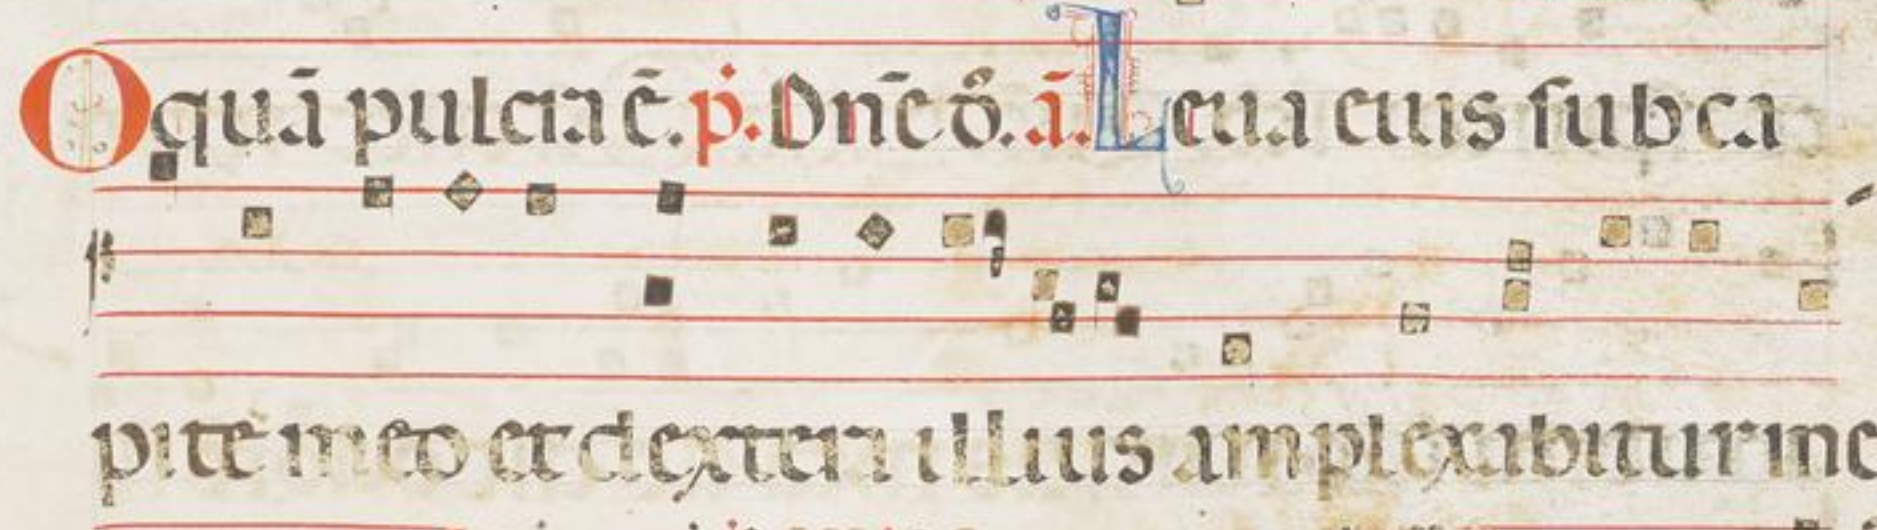 O quā pulcra ē. p̄. Dn̄e ō. ā. Leua eius sub ca
pite meo et dextera illius amplexabitur me